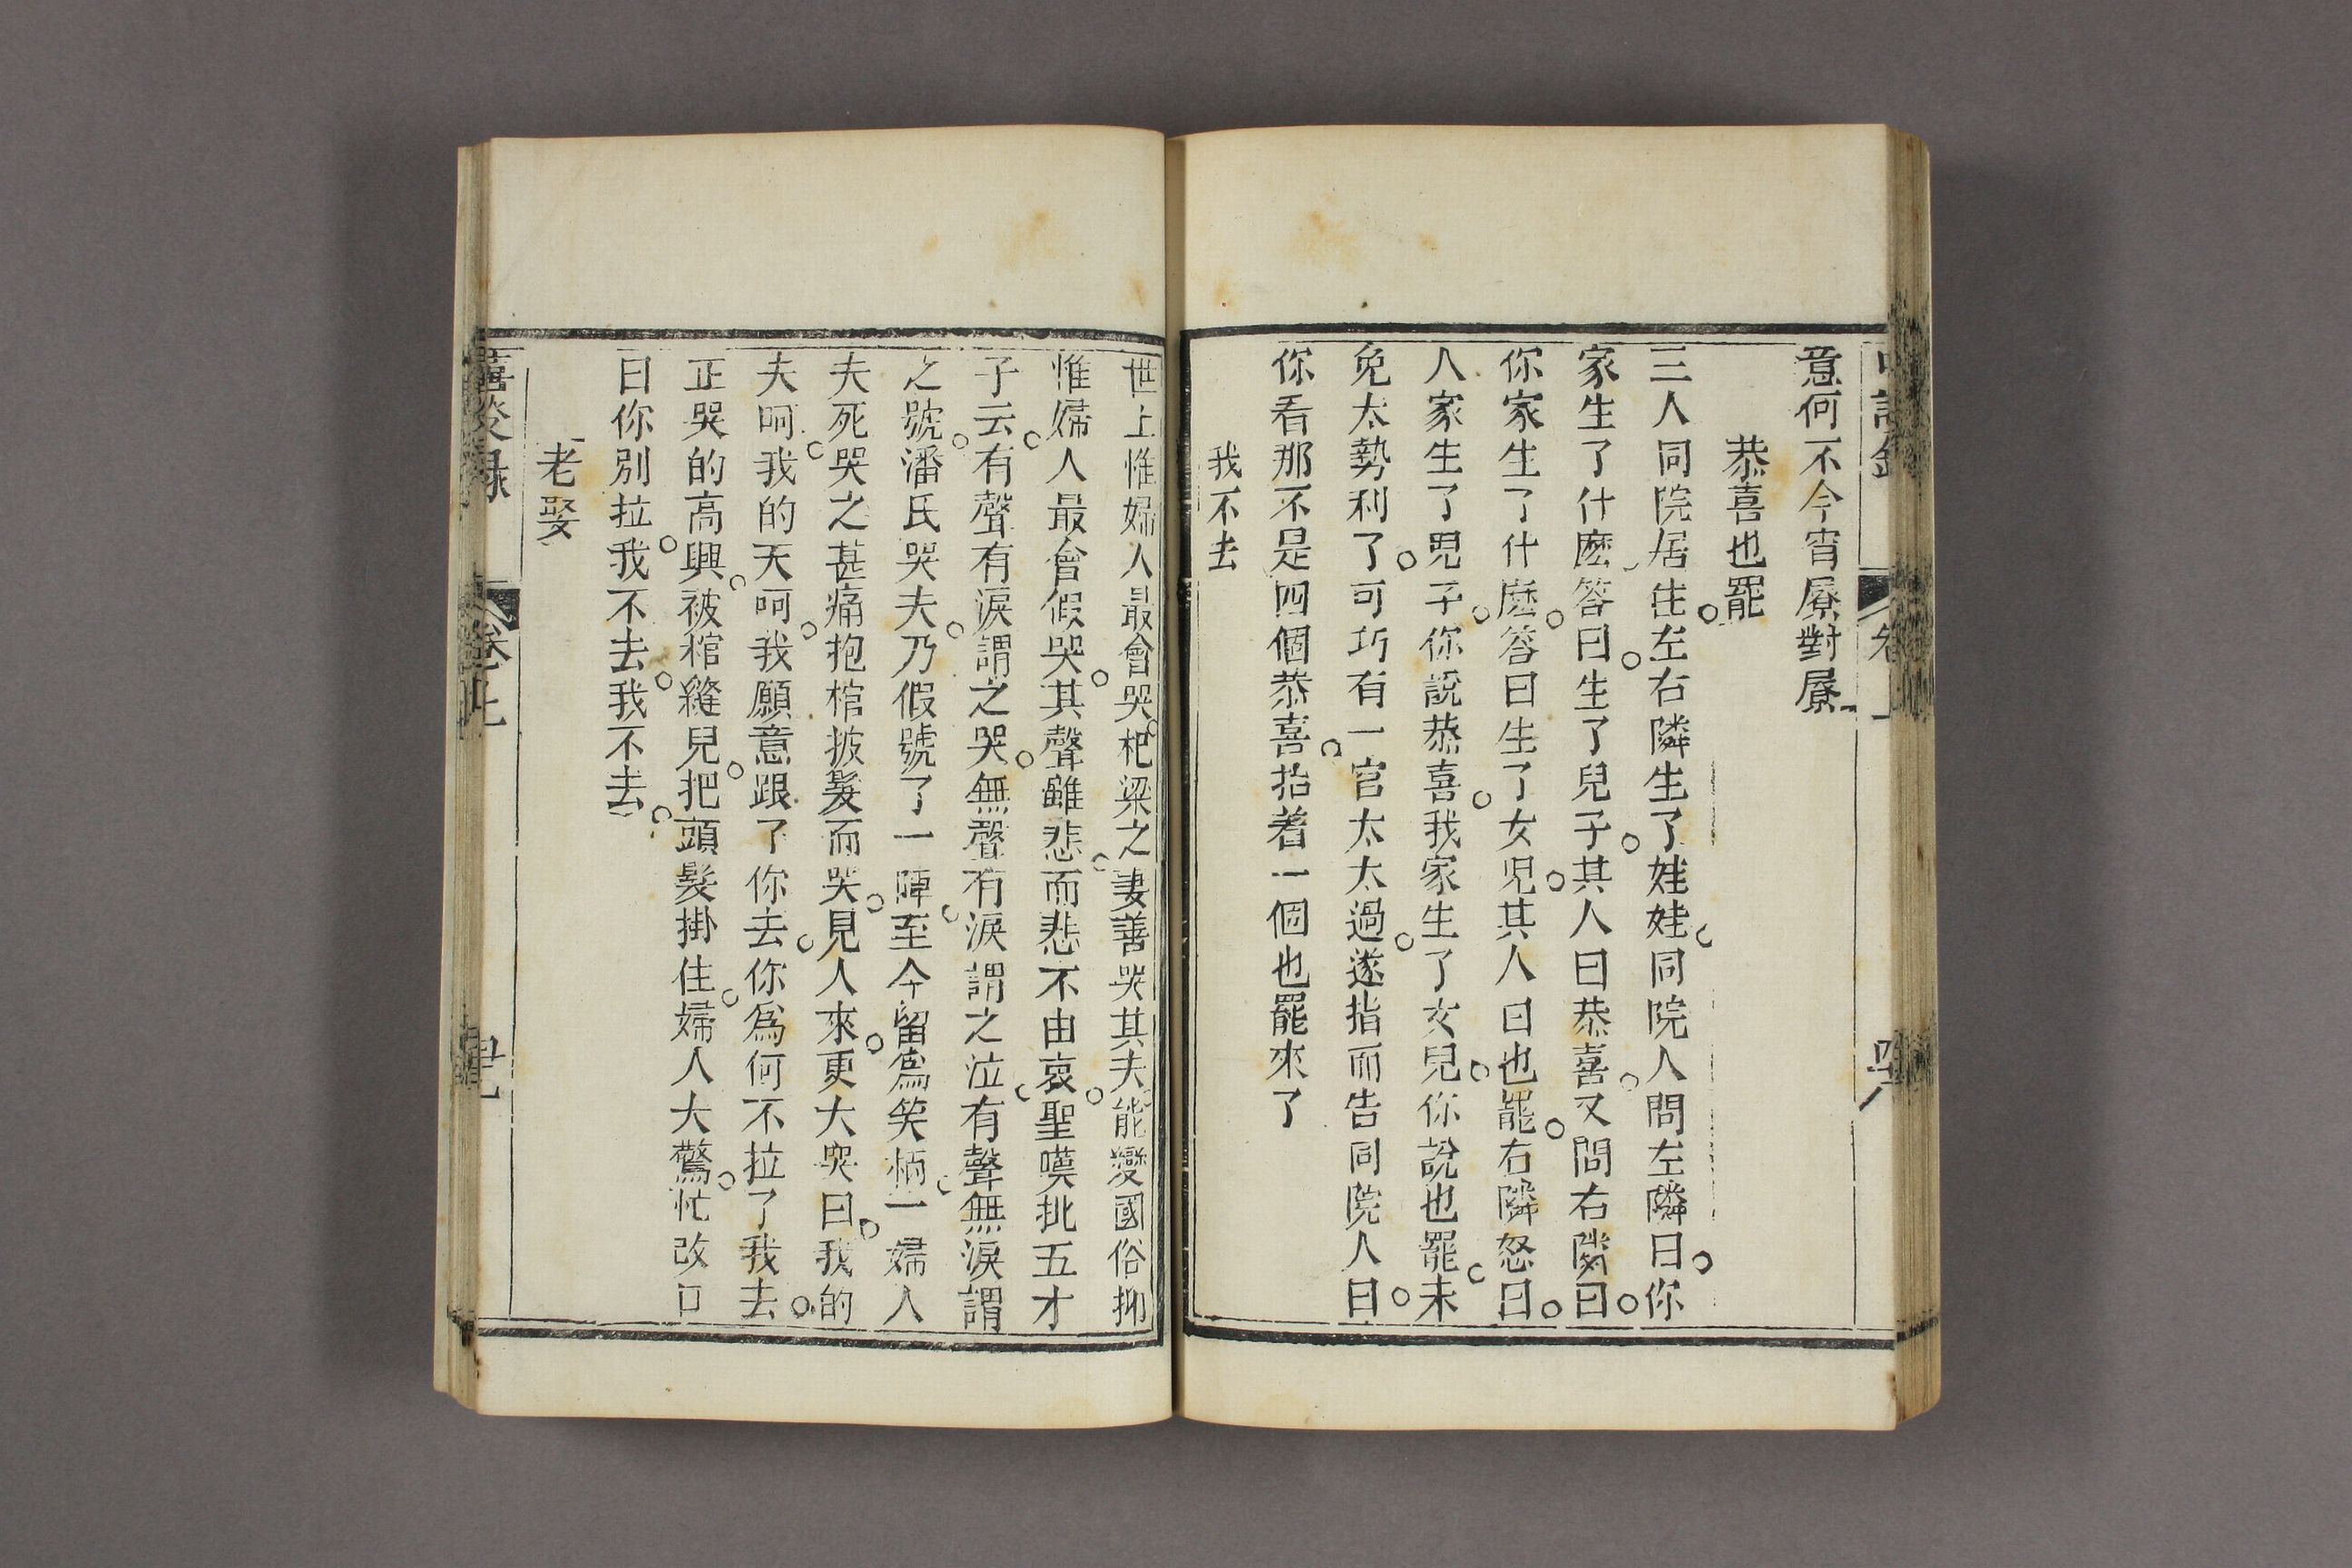 意何不今宵屪對屪
恭喜也罷
三人同院居住左右隣生了娃娃同院人問左隣曰你
家生了什麽答曰生了兒子其人曰恭喜又問右隣曰
你家生了什麽答曰生了女兒其人曰也罷右隣怒曰
人家生了兒子你說恭喜我家生了女兒你說也罷未
免太勢利了可巧有一官太太過遂指而告同院人曰
你看那不是四個恭喜抬着一個也罷來了
我不去
世上惟婦人最會哭杞梁之妻善哭其夫能變國俗抑
惟婦人最會假哭其聲雖悲而悲不由哀聖嘆批五才
子云有聲有淚謂之哭無聲有淚謂之泣有聲無淚謂
之號潘氏哭夫乃假號了一陣至今留爲笑柄一婦人
夫死哭之甚痛抱棺披髮而哭見人來更大哭曰我的
夫呵我的天呵我願意跟了你去你爲何不拉了我去
正哭的高興被棺縫兒把頭髮掛住婦人大驚忙改口
曰你別拉我不去我不去
老娶
卷上